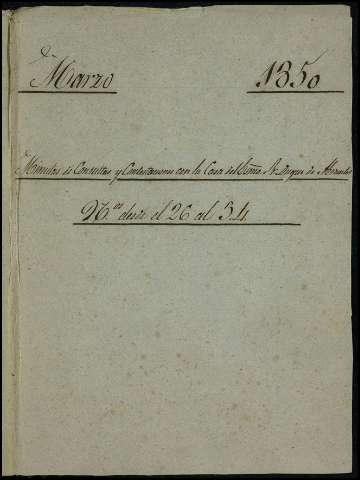 Marzo 1850
Minutas de Consultas y Contestaciones con la Casa del Excmo. Sr. Duque de Abrantes
N.os desde el 26 al 34.